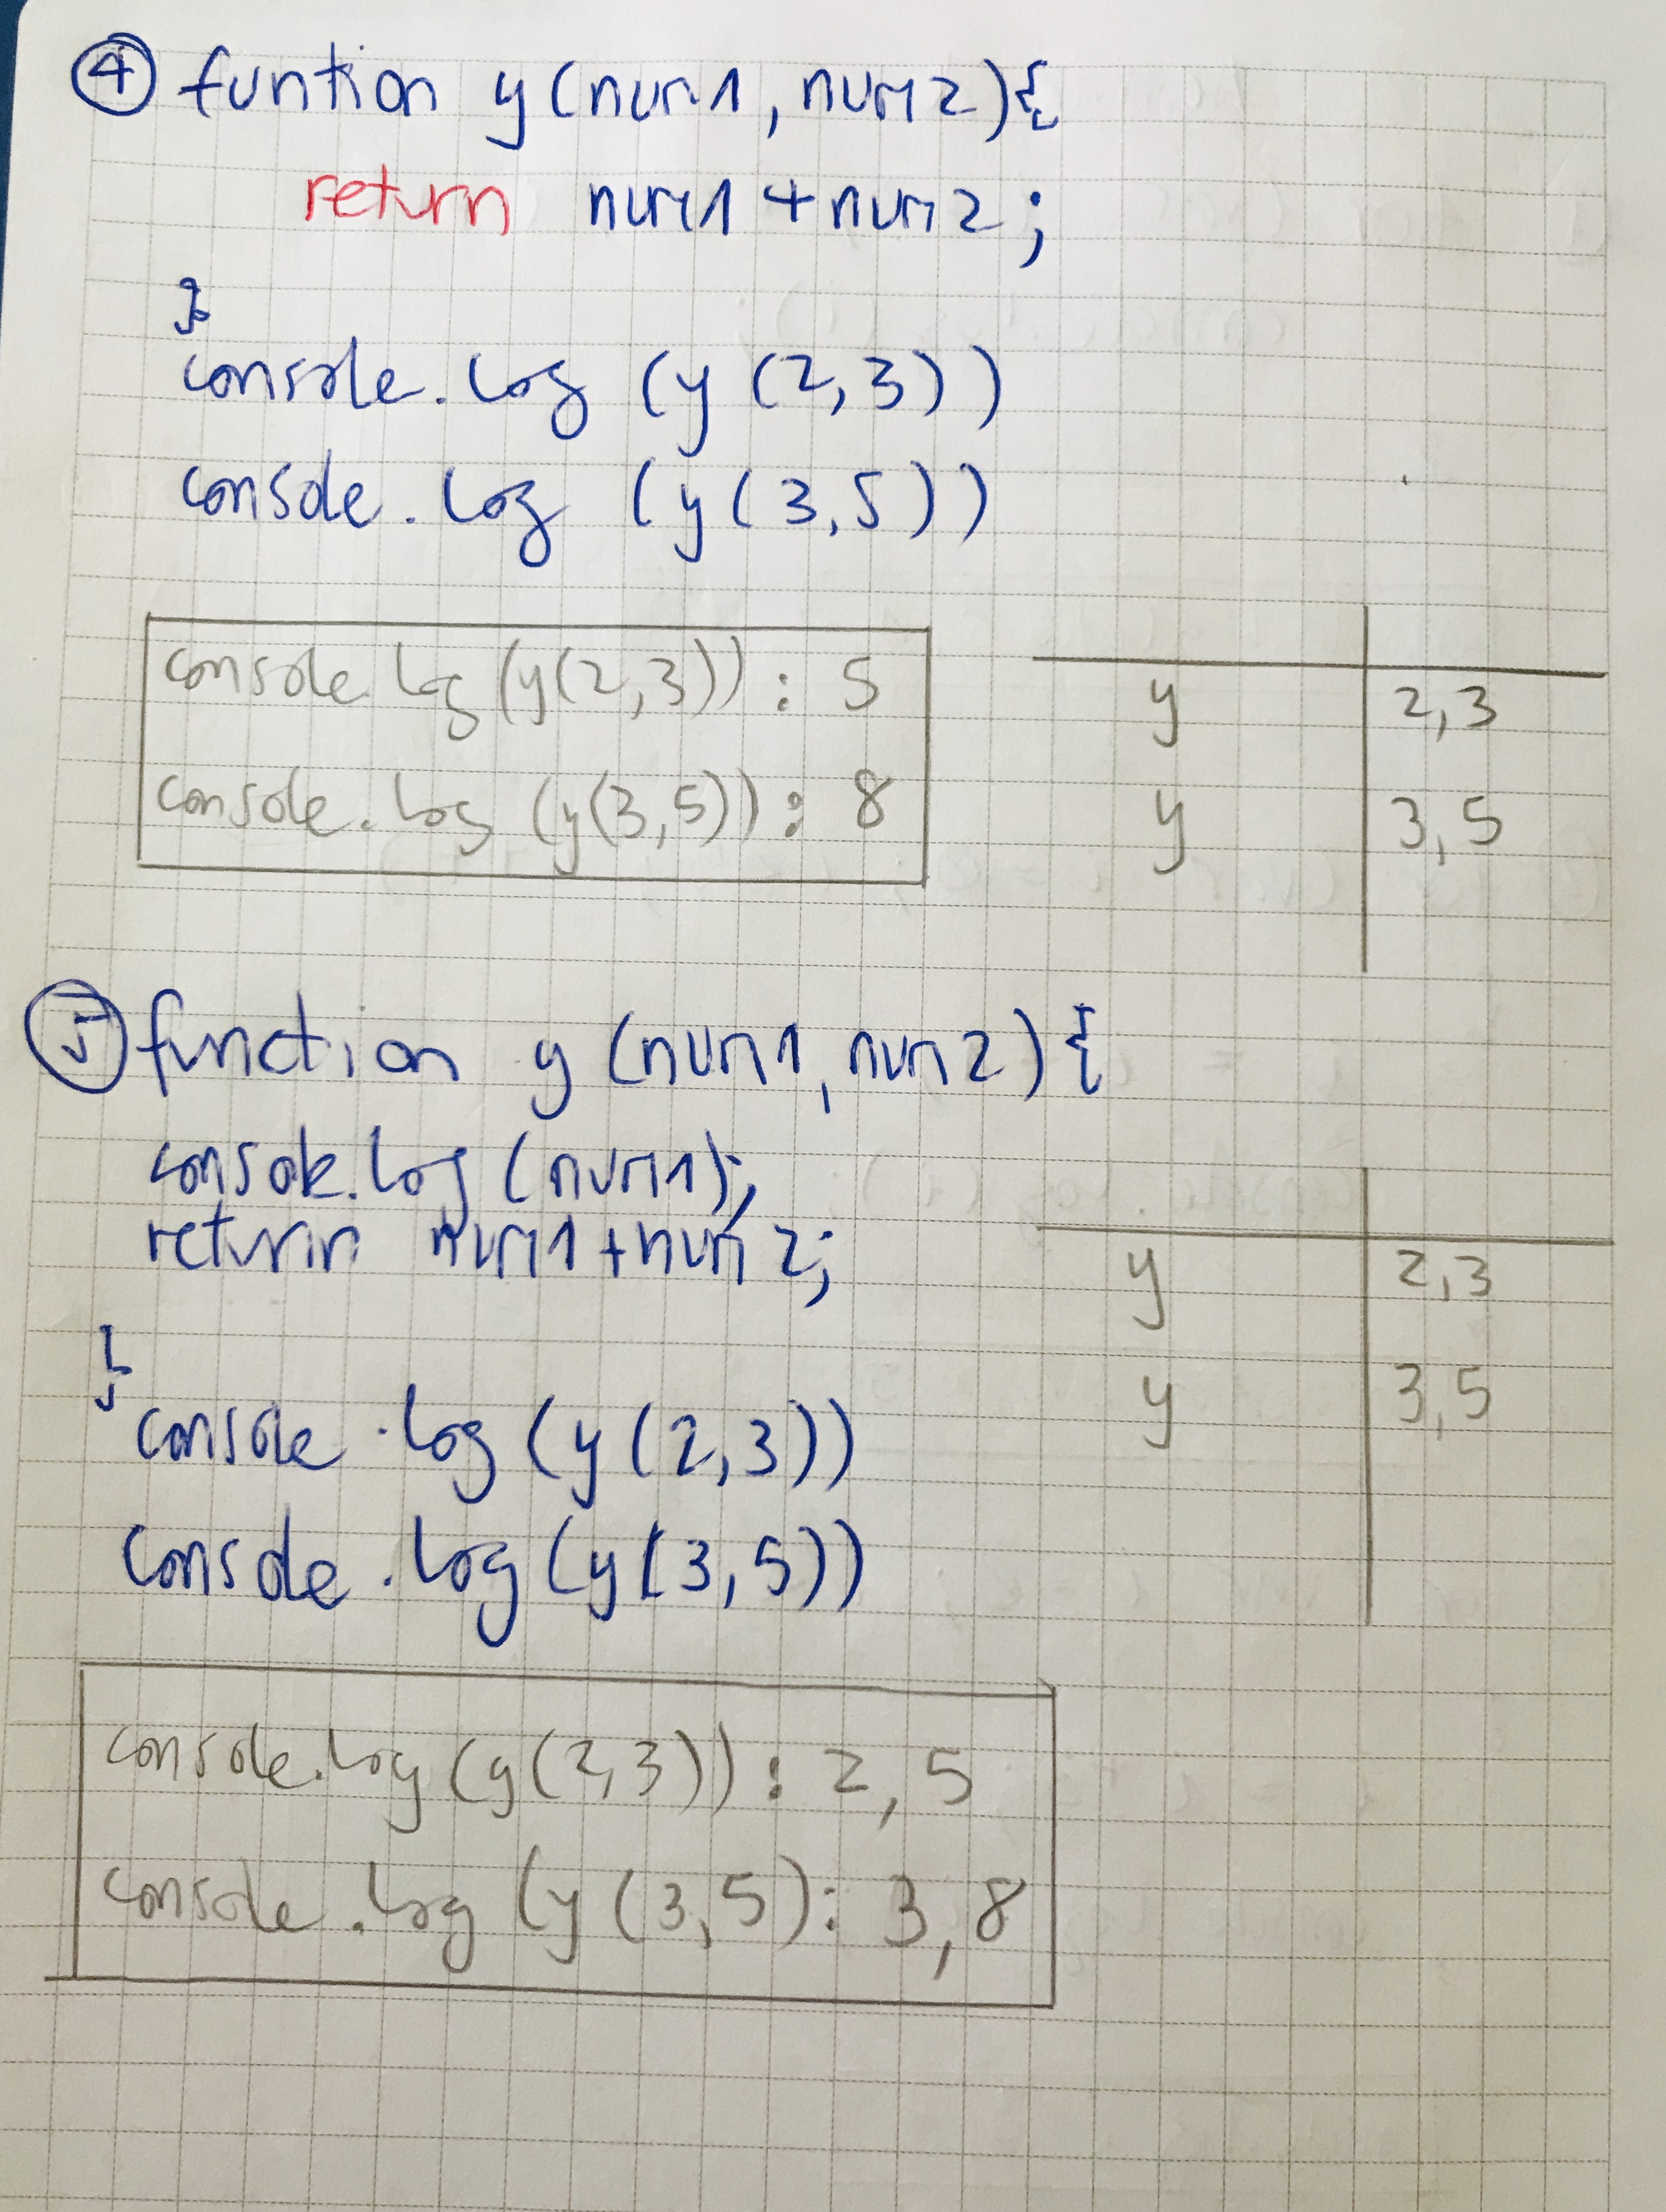 ④ funtion y (num1, num2){
return num1 + num2 ;
}
console. log (y (2,3))
console. log (y(3,5))
console. log (y(2,3)) : 5
console. log (y(3,5)) : 8
y 2,3
y 3,5
⑤ function y (num1, num2) {
console. log (num1);
return num1 + num2;
}
console . log (y (2,3))
console . log (y(3,5))
y 2,3
y 3,5
console. log (y(2,3)) : 2, 5
console . log (y (3,5) : 3, 8